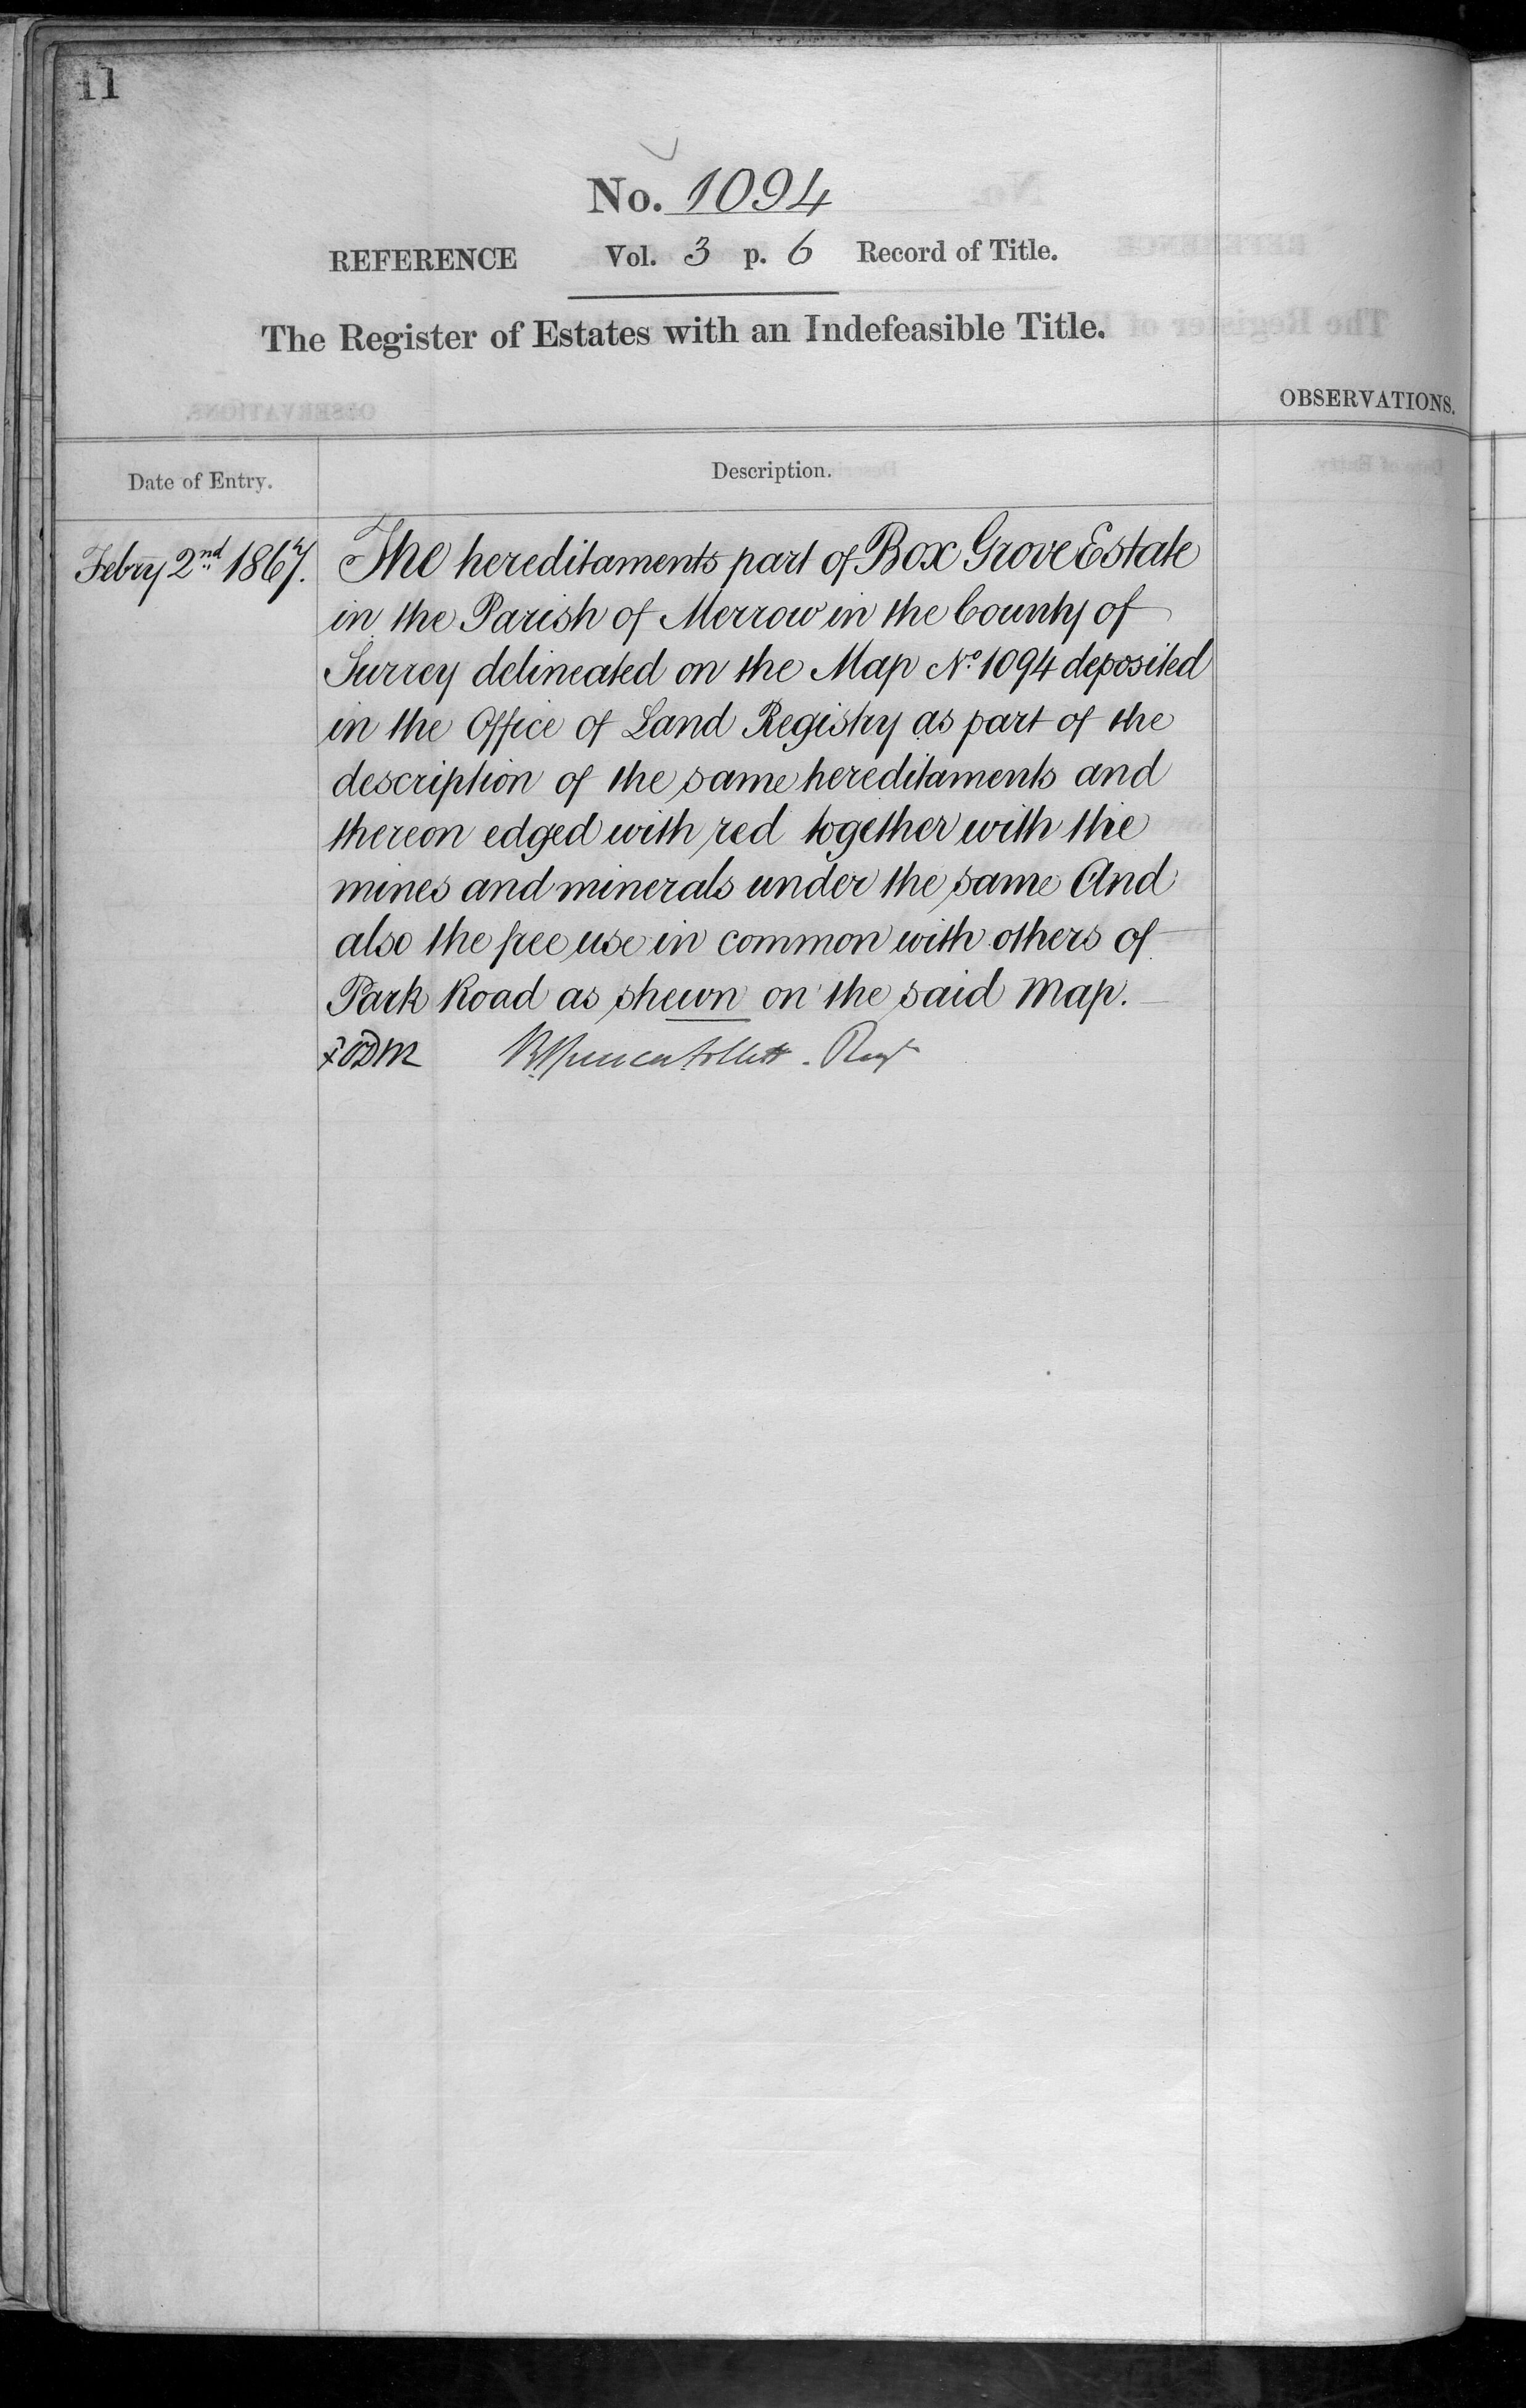 11
No. 1094
REFERENCE Vol. 3 p. 6 Record of Title.
The Register of Estates with an Indefeasible Title.
OBSERVATIONS.
Date of Entry.
Description.
Febry 2nd 1867.
The hereditaments part of Box Grove Estate
in the Parish of Merrow in the County of
Surrey delineated on the Map No. 1094 deposited
in the Office of Land Registry as part of the
description of the same hereditaments and
thereon edged with red together with the
mines and minerals under the same And
also the free use in common with others of
Park Road as shewn on the said Map.
Follett. Regr